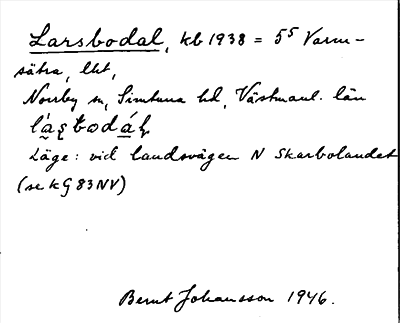 Larsbodal, kb 1938 = 5⁵ Varm-
sätra, lht,
Norrby sn, Simtuna hd, Västmanl. län
Läge: vid landsvägen N Skarbolandet
(se kG 83 NV)
Bernt Johansson 1946.